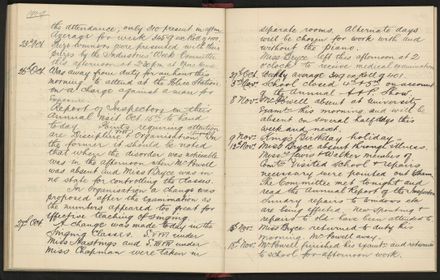 the attendance; only 350 present in afternoon
Average for week 345.9 on Roll 400.
23rd Oct. Prize winners were presented with their
prizes by the Industries Week Committee
this afternoon at 2.30 pm
26th Oct. Was away from duty for an hour this
morning to attend at the Police Station
on a charge against a man for
exposure.
Report of Inspectors on their
Annual Visit Oct 16th to hand
today. Points requiring attention
are Discipline & Organisation. In
the former it should be noted
that where the disorder was noticeable
was in the afternoon, and Mr Powell
was absent and Miss Bryce was in
no state for controlling the classes.
In Organisation a change was
proposed after the examination as
the numbers appeared too great for
effective teaching of singing.
27th Oct. A change was made today in the
Singing Classes. under
Miss Hastings and under
Miss Chapman were taken in
separate rooms. Alternate days
will be chosen for work with and
without the piano.
Miss Bryce left this afternoon at 2
o'clock to receive medical examination
Weekly average 309 on Roll of 401.
School closed on account
of the Annual Show
8 Nov. Mr Powell absent at University
Exams this morning and will be
absent on several half days this
week and next.
9 Nov. King's Birthday holiday
Miss Bryce absent through illness.
Lewis & Welker Members of
Comtee visited School & repairs
necessary were pointed out to them.
The Committee met tonight and
read the Annual Report of the Inspectors
Sundry repairs to windows etc
are being effected. New fencing &
repairs to old have been attended to
Miss Bryce returned to duty this
morning. Mr Powell away
Mr Powell finished his exams and returned
to school for afternoon work.